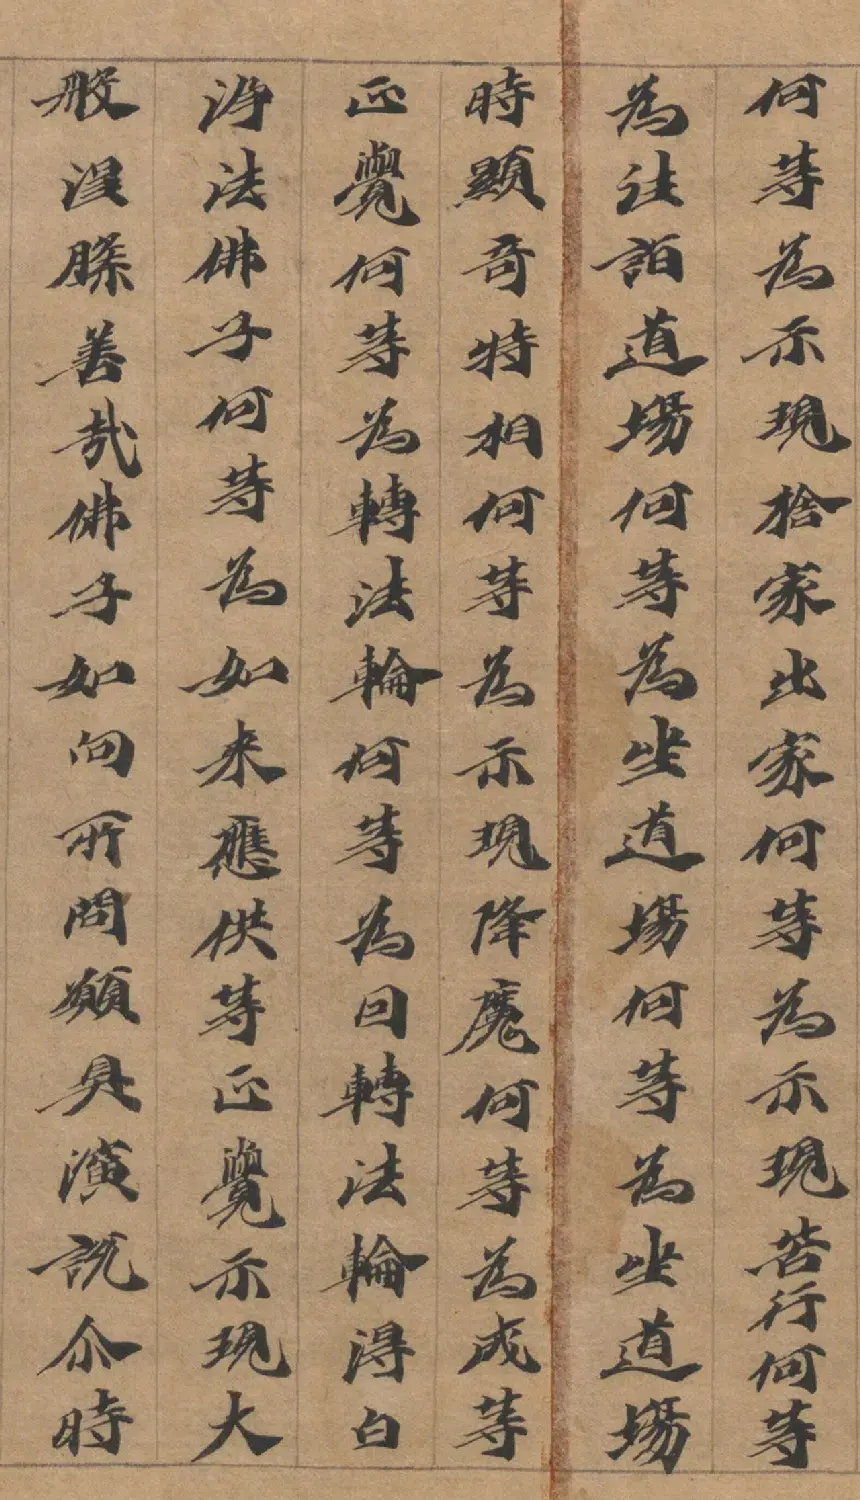 何等為示現捨家出家何等為示現苦行何等
為往詣道場何等為坐道場何等為坐道場
時顯奇特相何等為示現降魔何等為成等
正覺何等為轉法輪何等為因轉法輪得白
淨法佛子何等為如来應供等正覺示現大
般涅槃善哉佛子如向所問願具演說尒時